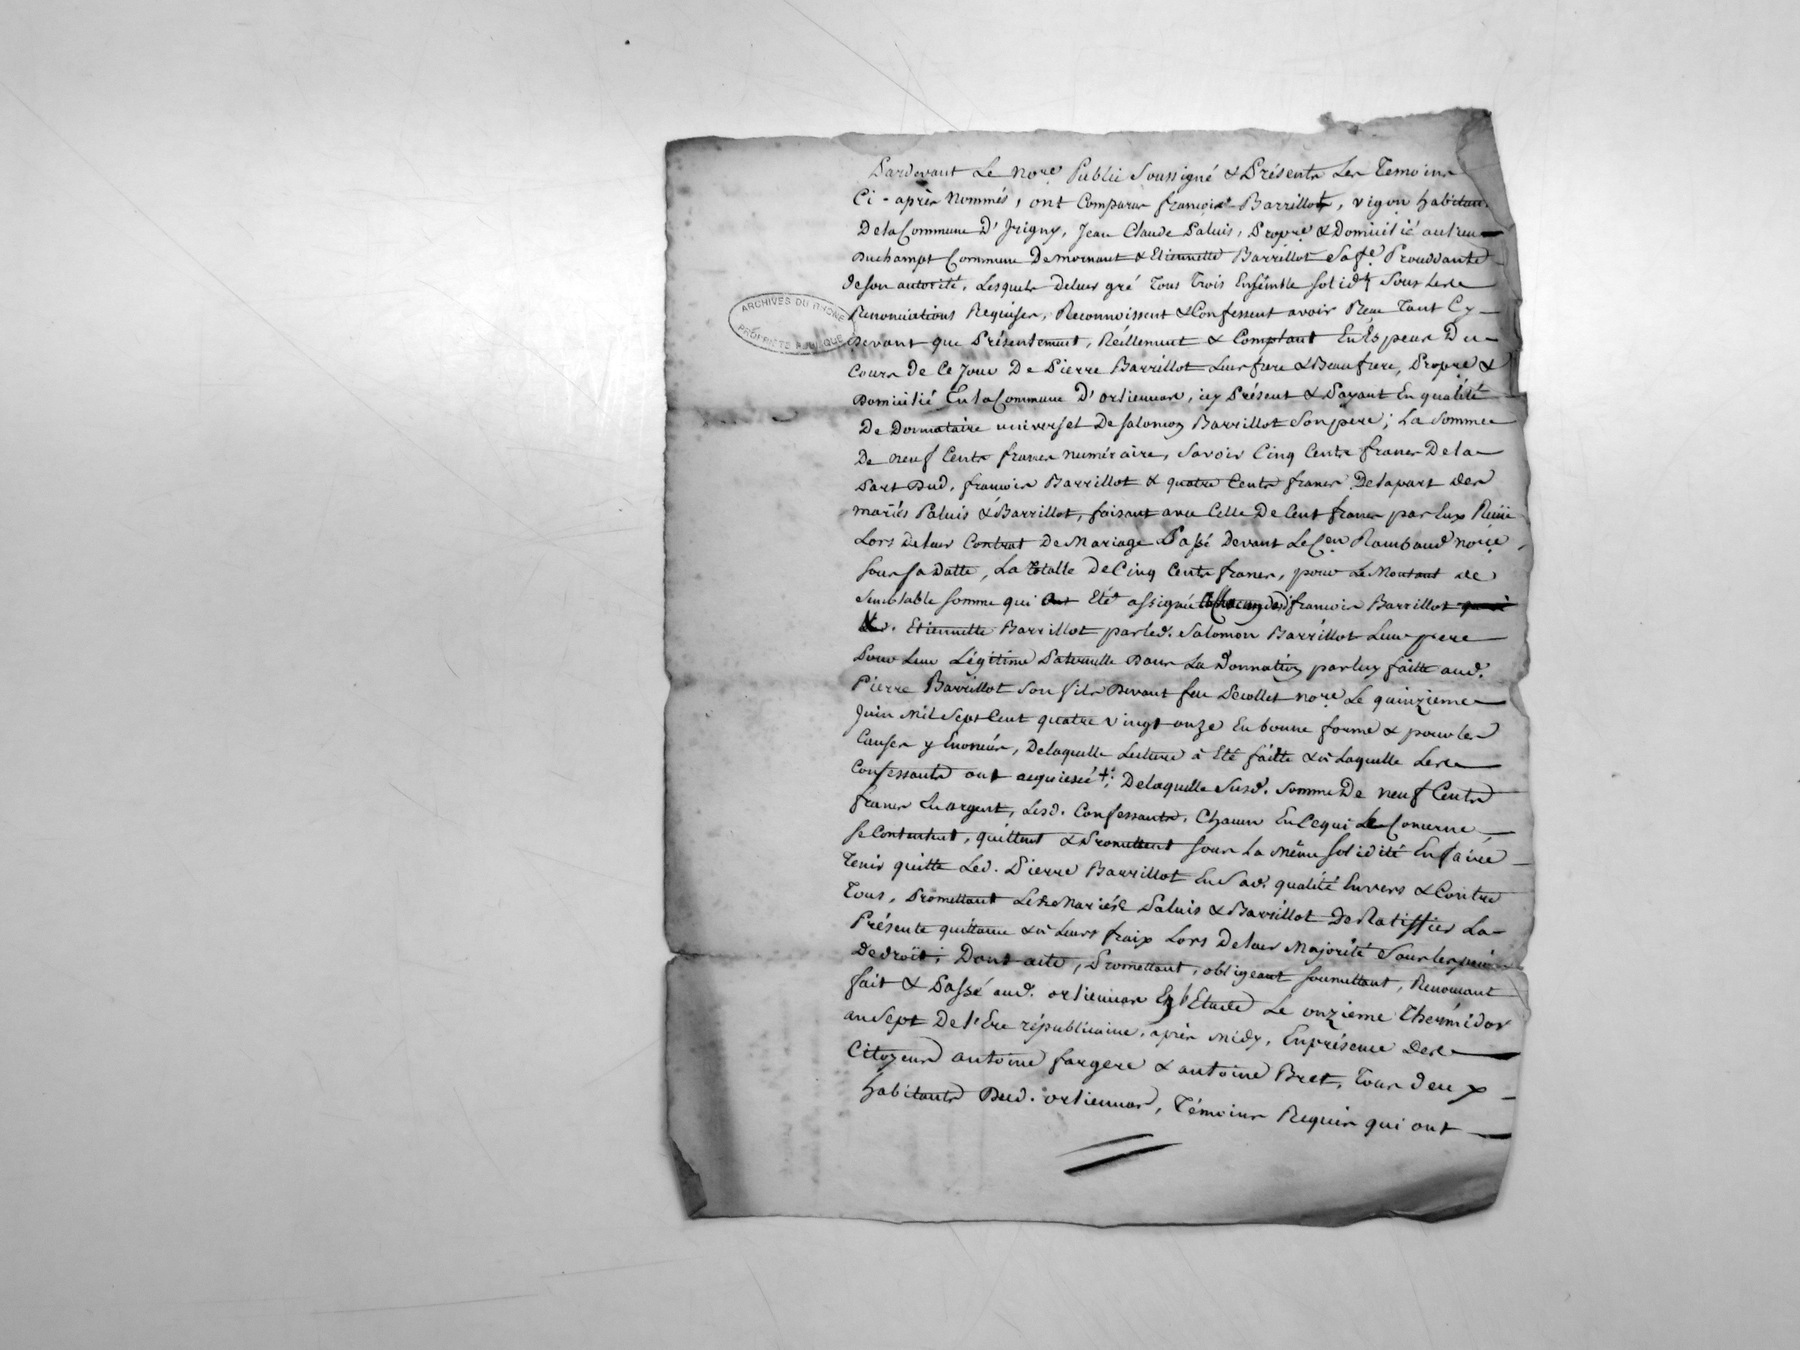 Pardevant Le no.re Public Soussigné & Présents Les Temoins
Ci-après Nommés, ont Comparus françois Barrillot, vigon habitant
De la Commune D'Irigny, Jean Claude Paluis, Propre. & Domicilié au lieu
Duchampt Commune De mornant & Etiennette Barrillot Sa fe. Procédante
de son autorité, Lesquels de leur gré Tous Trois Ensemble solidt. Sous Les
Renonciations Requises, Reconnoissent & Confessent avoir Reçu Tant Cy
Devant que Présentement, Réellement & Comptant En Especes Du
Cours de Ce Jour De Pierre Barrillot Leur frere & Beaufrere, Propre. &
Domicilié En la Commune D'orlienas, icy Présent & Payant En qualité
De Donnataire universel De Salomon Barrillot Son père; La Somme
De neuf Cents francs numéraire, Savoir Cinq Cents francs De la
Part Dud. françois Barrillot & quatre Cents francs De la part des
mariés Paluis & Barrillot, faisant avec Celle De Cent francs par Eux Reçue
Lors de leur Contrat De Mariage Passé Devant Le C.en Rambaud no.re
sous sa Datte, La totalle De Cinq Cents francs, pour Le Montant de
semblable somme qui Eté assigné françois Barrillot
&. Etiennette Barrillot par led. Salomon Barrillot Leur pere
Pour Leur Légitime Paternelle Dans La Donnation par luy faitte aud.
Pierre Barrillot Son fils Devant feu Decollet no.re Le quinzieme
Juin Mil Sept Cent quatre vingt onze En bonne forme & pour les
Causes y Enoncées, De laquelle Lecture à Eté faitte & à Laquelle Les
Confessants ont acquiescé +; De laquelle Susd. Somme De neuf Cents
francs En argent, Lesd. Confessants, Chacun En Ce qui Le Concerne
se Contentent, quittent & Promettent sous La même solidité En faire
Tenir quitte Led. Pierre Barrillot En Sad. qualité Envers & Contre
Tous, Promettant Les Mariés Paluis & Barrillot De Ratiffier La
Présente quittance & à Leurs fraix Lors De leur Majorité Sous les peines
De droit; Dont acte, Promettant, obligeant soumettant, Renonçant
fait & Passé aud. orlienas En l'Etude Le onzieme Thermidor
an Sept De l'Ere républicaine, après Midy, En présence Des
Citoyens antoine fargere & antoine Bret, Tous deux
habitants Dud. orlienas, Témoins Requis qui ont
ARCHIVES DU RHONE
PROPRIETE PUBLIQUE